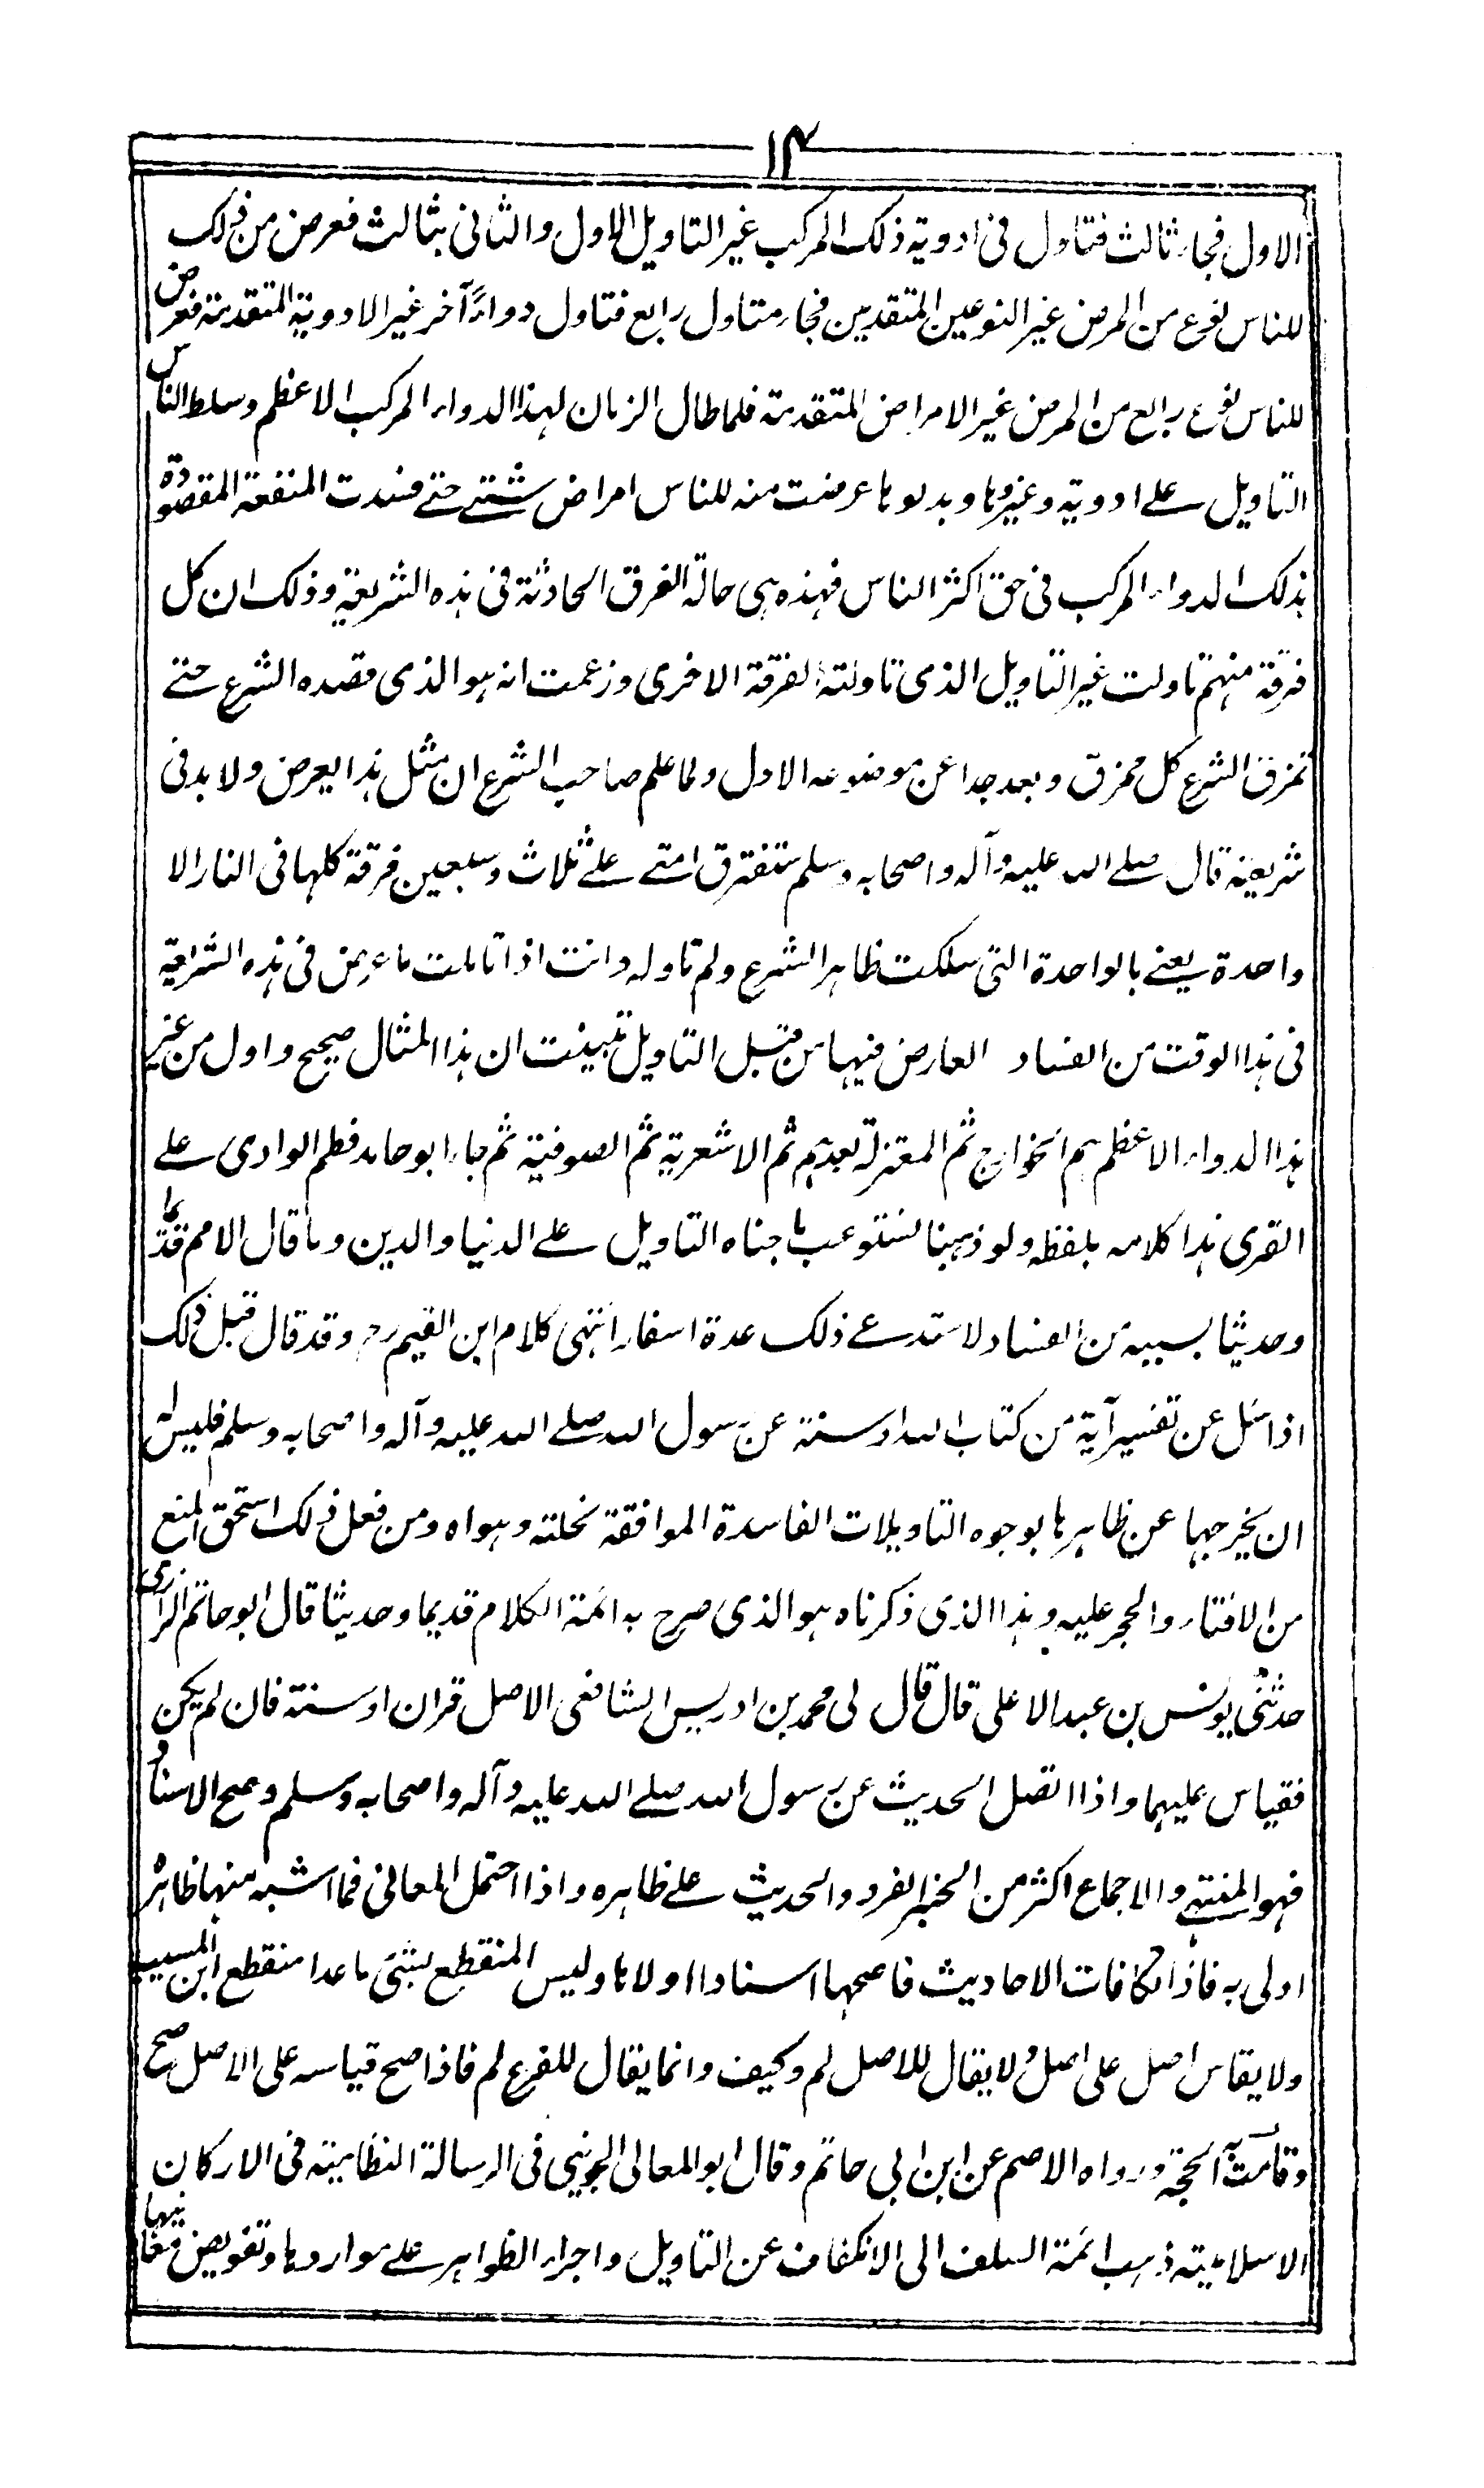 ١٤
الاول فجاء ثالث فتاول فى ادوية ذلك المركب غير التاويل الاول والثانى بثالث فعرض من ذلك
للناس نوع من المرض غير النوعين المتقدمين فجاء متاول رابع فتاول دواءً آخر غير الادوية المتقدمة فعرض
للناس نوع رابع من المرض غير الامراض المتقدمة فلما طال الزمان لهذا الدواء المركب الاعظم وسلط الناس
التاويل على ادويته وغيروها وبدلوها عرضت منه للناس امراض شتى حتى فسدت المنفعة المقصودة
بذلك الدواء المركب فى حق اكثر الناس فهذه هى حالة الفرق الحادثة فى هذه الشريعة وذلك ان كل
فرقة منهم تاولت غير التاويل الذى تاولته الفرقة الاخرى وزعمت انه هو الذى قصده الشرع حتى
تمزق الشرع كل ممزق وبعد جدا عن موضوعه الاول ولما علم صاحب الشرع ان مثل هذا يعرض ولا بد فى
شريعته قال صلى الله عليه وآله واصحابه وسلم ستفترق امتى على ثلاث وسبعين فرقة كلها فى النار الا
واحدة يعنى بالواحدة التى سلكت ظاهر الشرع ولم تاوله وانت اذا تاملت ما عرض فى هذه الشريعة
فى هذا الوقت من الفساد العارض فيها من قبل التاويل تبينت ان هذا المثال صحيح واول من غير
هذا الدواء الاعظم هم الخوارج ثم المعتزلة بعدهم ثم الاشعرية ثم الصوفية ثم جاء ابو حامد فطم الوادى على
القرى هذا كلامه بلفظه ولو ذهبنا نستوعب ما جناه التاويل على الدنيا والدين وما قال الامم قديما
وحديثا بسببه من الفساد لاستدعى ذلك عدة اسفار انتهى كلام ابن القيم رح وقد قال قبل ذلك
اذا سئل عن تفسير آية من كتاب الله او سنة عن رسول الله صلى الله عليه وآله واصحابه وسلم فليس له
ان يخرجها عن ظاهرها بوجوه التاويلات الفاسدة الموافقة نحلته وهواه ومن فعل ذلك استحق المنع
من الافتاء والحجر عليه وهذا الذى ذكرناه هو الذى صرح به ائمة الكلام قديما وحديثا قال ابو حاتم الرازى
حدثنى يونس بن عبد الاعلى قال قال لى محمد بن ادريس الشافعى الاصل قران او سنة فان لم يكن
فقياس عليهما واذا اتصل الحديث عن رسول الله صلى الله عليه وآله واصحابه وسلم وصح الاسناد
فهو المنتهى والاجماع اكثر من الخبر الفرد والحديث على ظاهره واذا احتمل المعانى فما اشبه منها ظاهره
اولى به فاذا تكافات الاحاديث فاصحها اسنادا اولاها وليس المنقطع بشئ ما عدا منقطع ابن المسيب
ولا يقاس اصل على اصل ولا يقال للاصل لم وكيف وانما يقال للفرع لم فاذا صح قياسه على الاصل صح
وقامت الحجة ورواه الاصم عن ابن ابى حاتم وقال ابو المعالى الجوينى فى الرسالة النظامية فى الاركان
الاسلامية ذهب ائمة السلف الى الانكفاف عن التاويل واجراء الظواهر على مواردها وتفويض معانيها